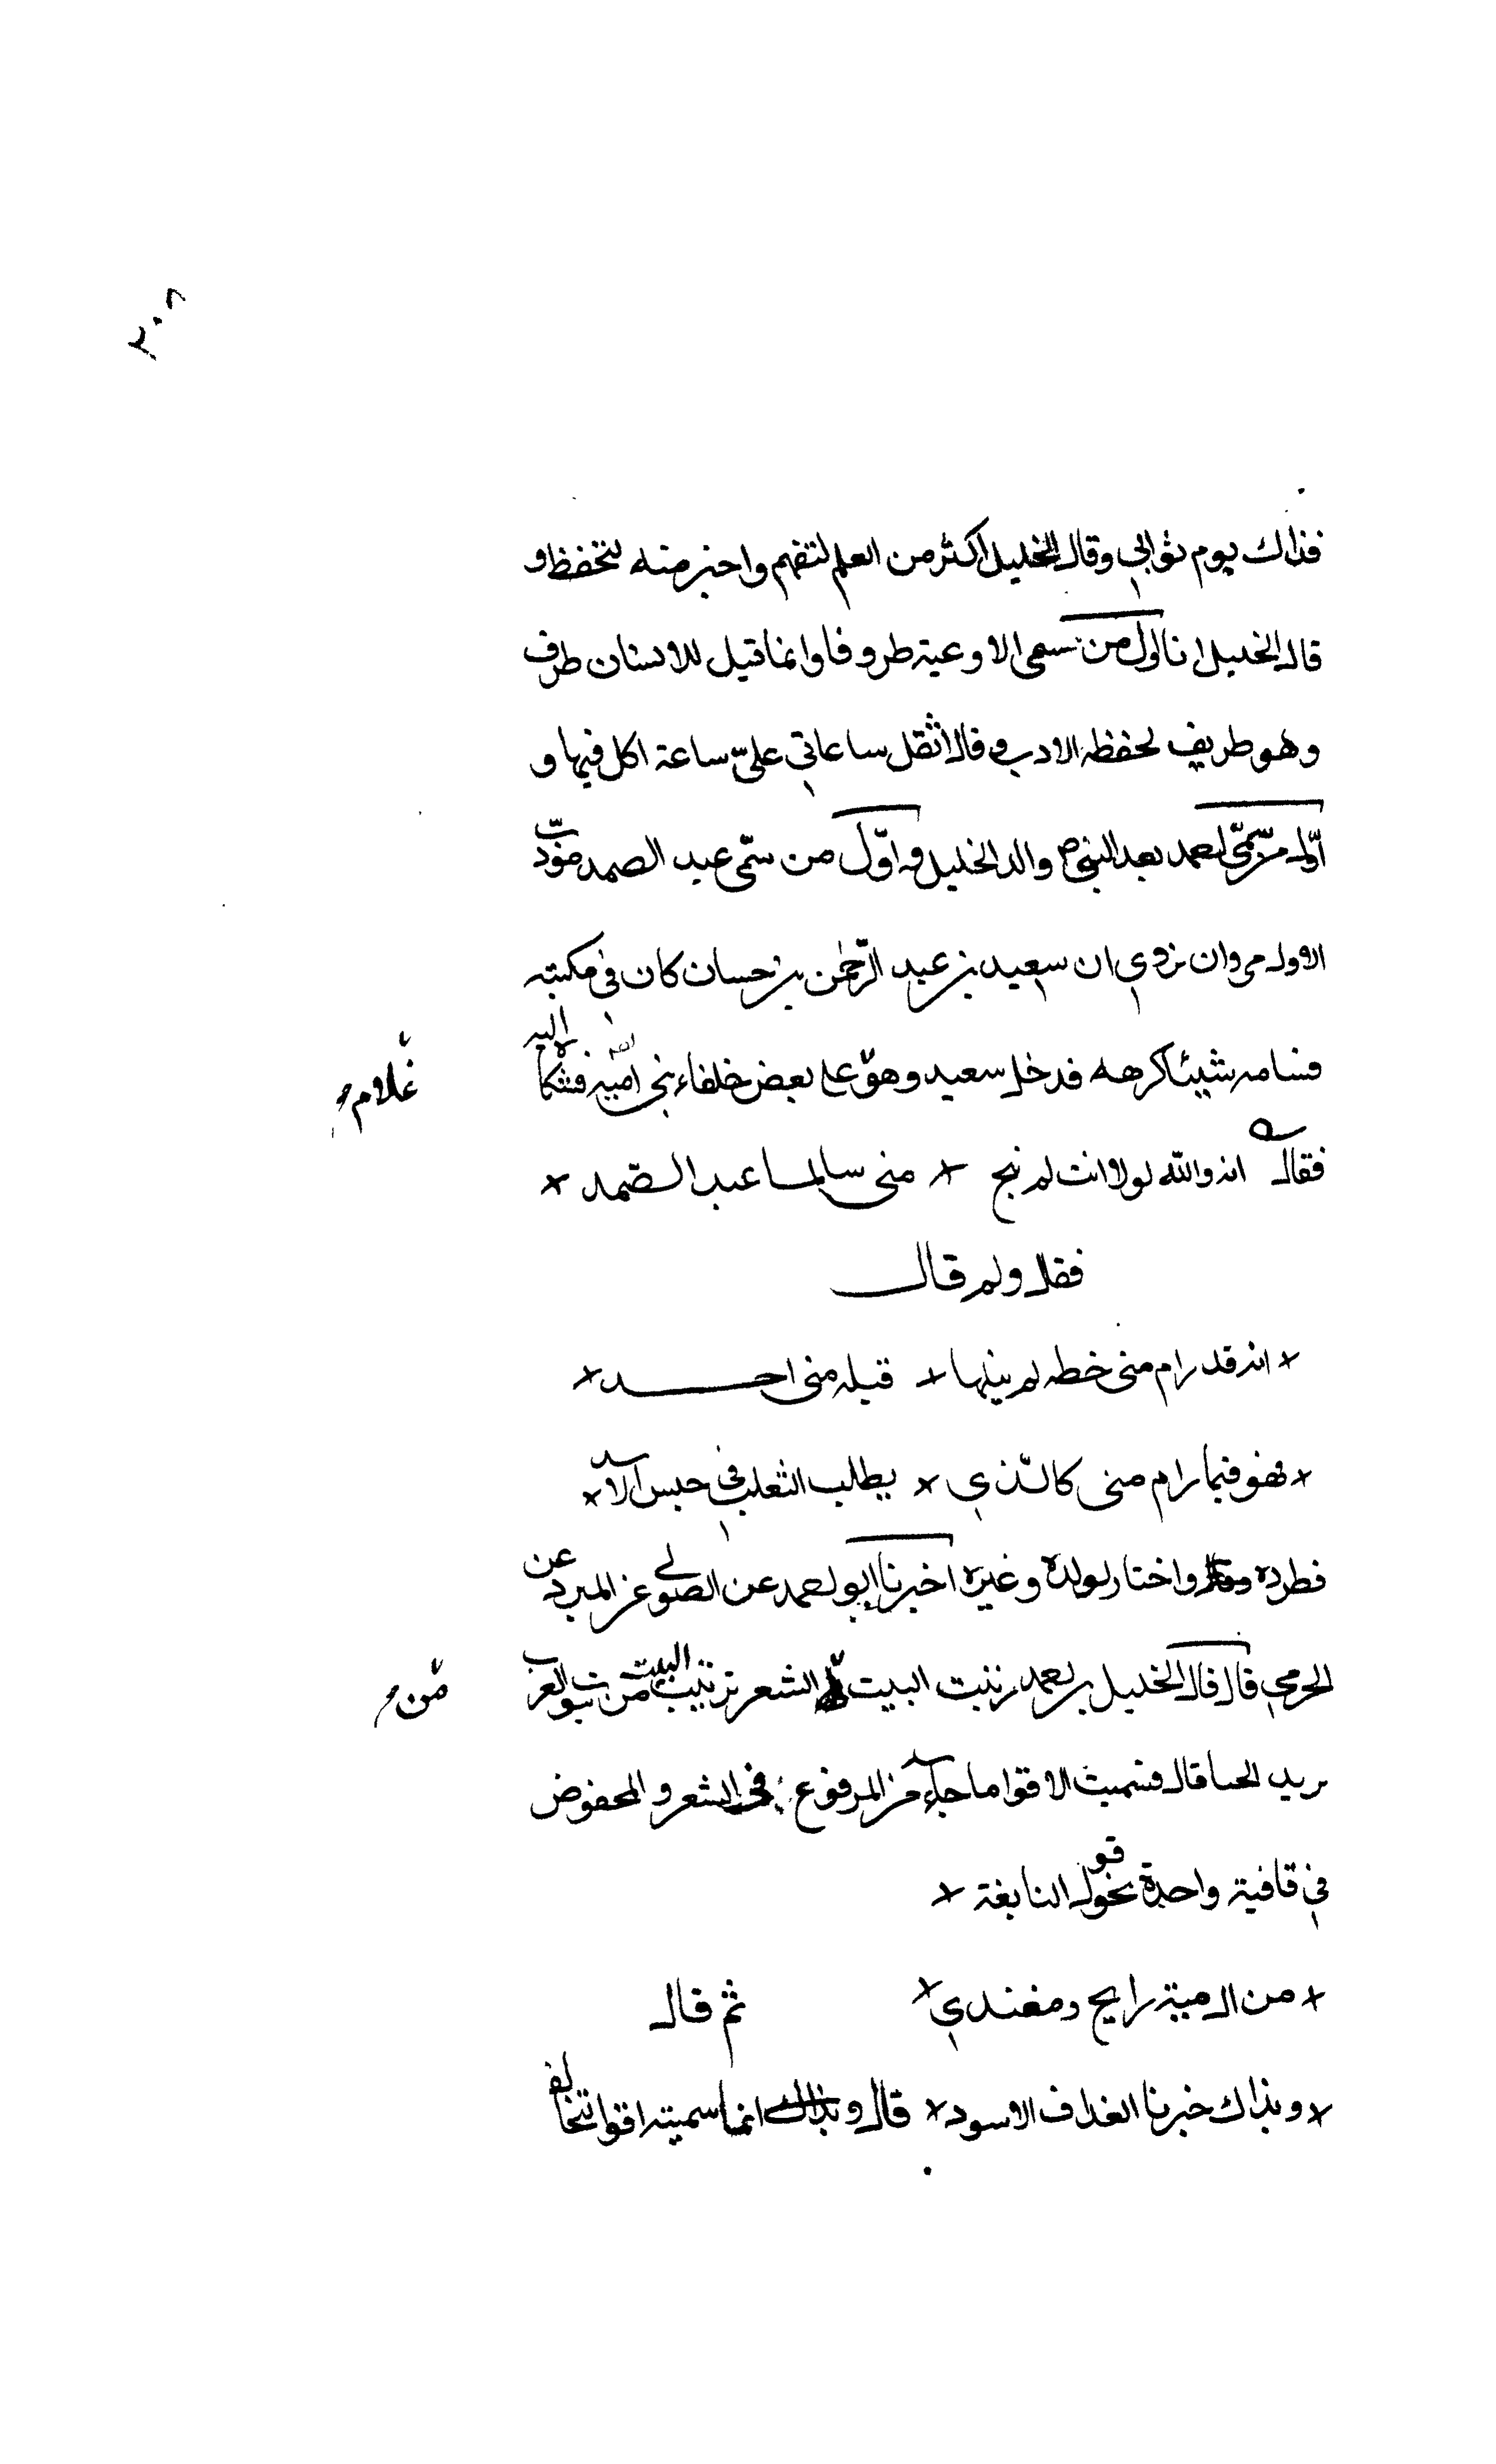 ٢٠٨
فذاك يوم ثوابي وقال الخليل اكثر من العلم لتفهم واختر منه لتحفظ و
قال الخليل انا اول من سمى الاوعية ظروفا وانما قيل للانسان ظرف
وهو ظريف لحفظه الادب و قال اثقل ساعاتي عليّ ساعة اكل فيها و
اوّل من سمّي احمد بعد النبي ص والد الخليل و اوّل من سمّي عبد الصمد مؤدّب
الاولد مروان نروي ان سعيد بن عبد الرّحمن بن حسان كان في مكتبه
فسامه شيئا كرهه فدخل سعيد وهو غلام على بعض خلفاء بني امية فشكاه اليه
فقال انه والله لولا انت لم ينج * مني سالما عبد الصّمد *
فقال ولم قال
* انه قد رام مني خطه لم ينلها * قبله مني احد *
* فهو فيما رام مني كالّذي * يطلب الثعلب في حبس الاسد *
فطرده واختار لولده وغيره اخبرنا ابو احمد عن الصولي عن المبرد عن
الجرمي قال قال الخليل بن احمد رتبت البيت من الشعر ترتيب البيت من بيوت العرب
يريد الخبا قال فسميت الاقوا ما جاء من المرفوع في الشعر و المخفوض
في قافية واحدة نحو قول النابغة *
* من ال مية رايح ومغتدي *
ثم قال
* وبذاك خبرنا الغداف الاسود * قال و انما سميته اقوا لتخالف